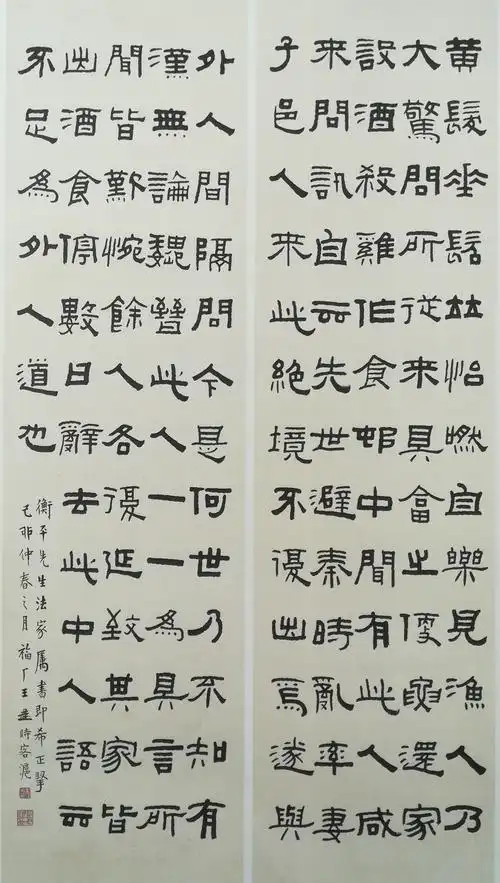 黃髮垂髫竝怡然自樂見漁人乃
大驚問所從來具畣之便要還家
設酒殺雞作食邨中聞有此人咸
來問訊自云先世避秦時亂率妻
子邑人來此絕境不復出焉遂與
外人間隔問今是何世乃不知有
漢無論魏晉此人一一為具言所
聞皆歎惋餘人各復延致其家皆
出酒食停數日辭去此中人語云
不足為外人道也
衡平先生法家屬書即希正擘
己卯仲春之月福厂王禔時客滬